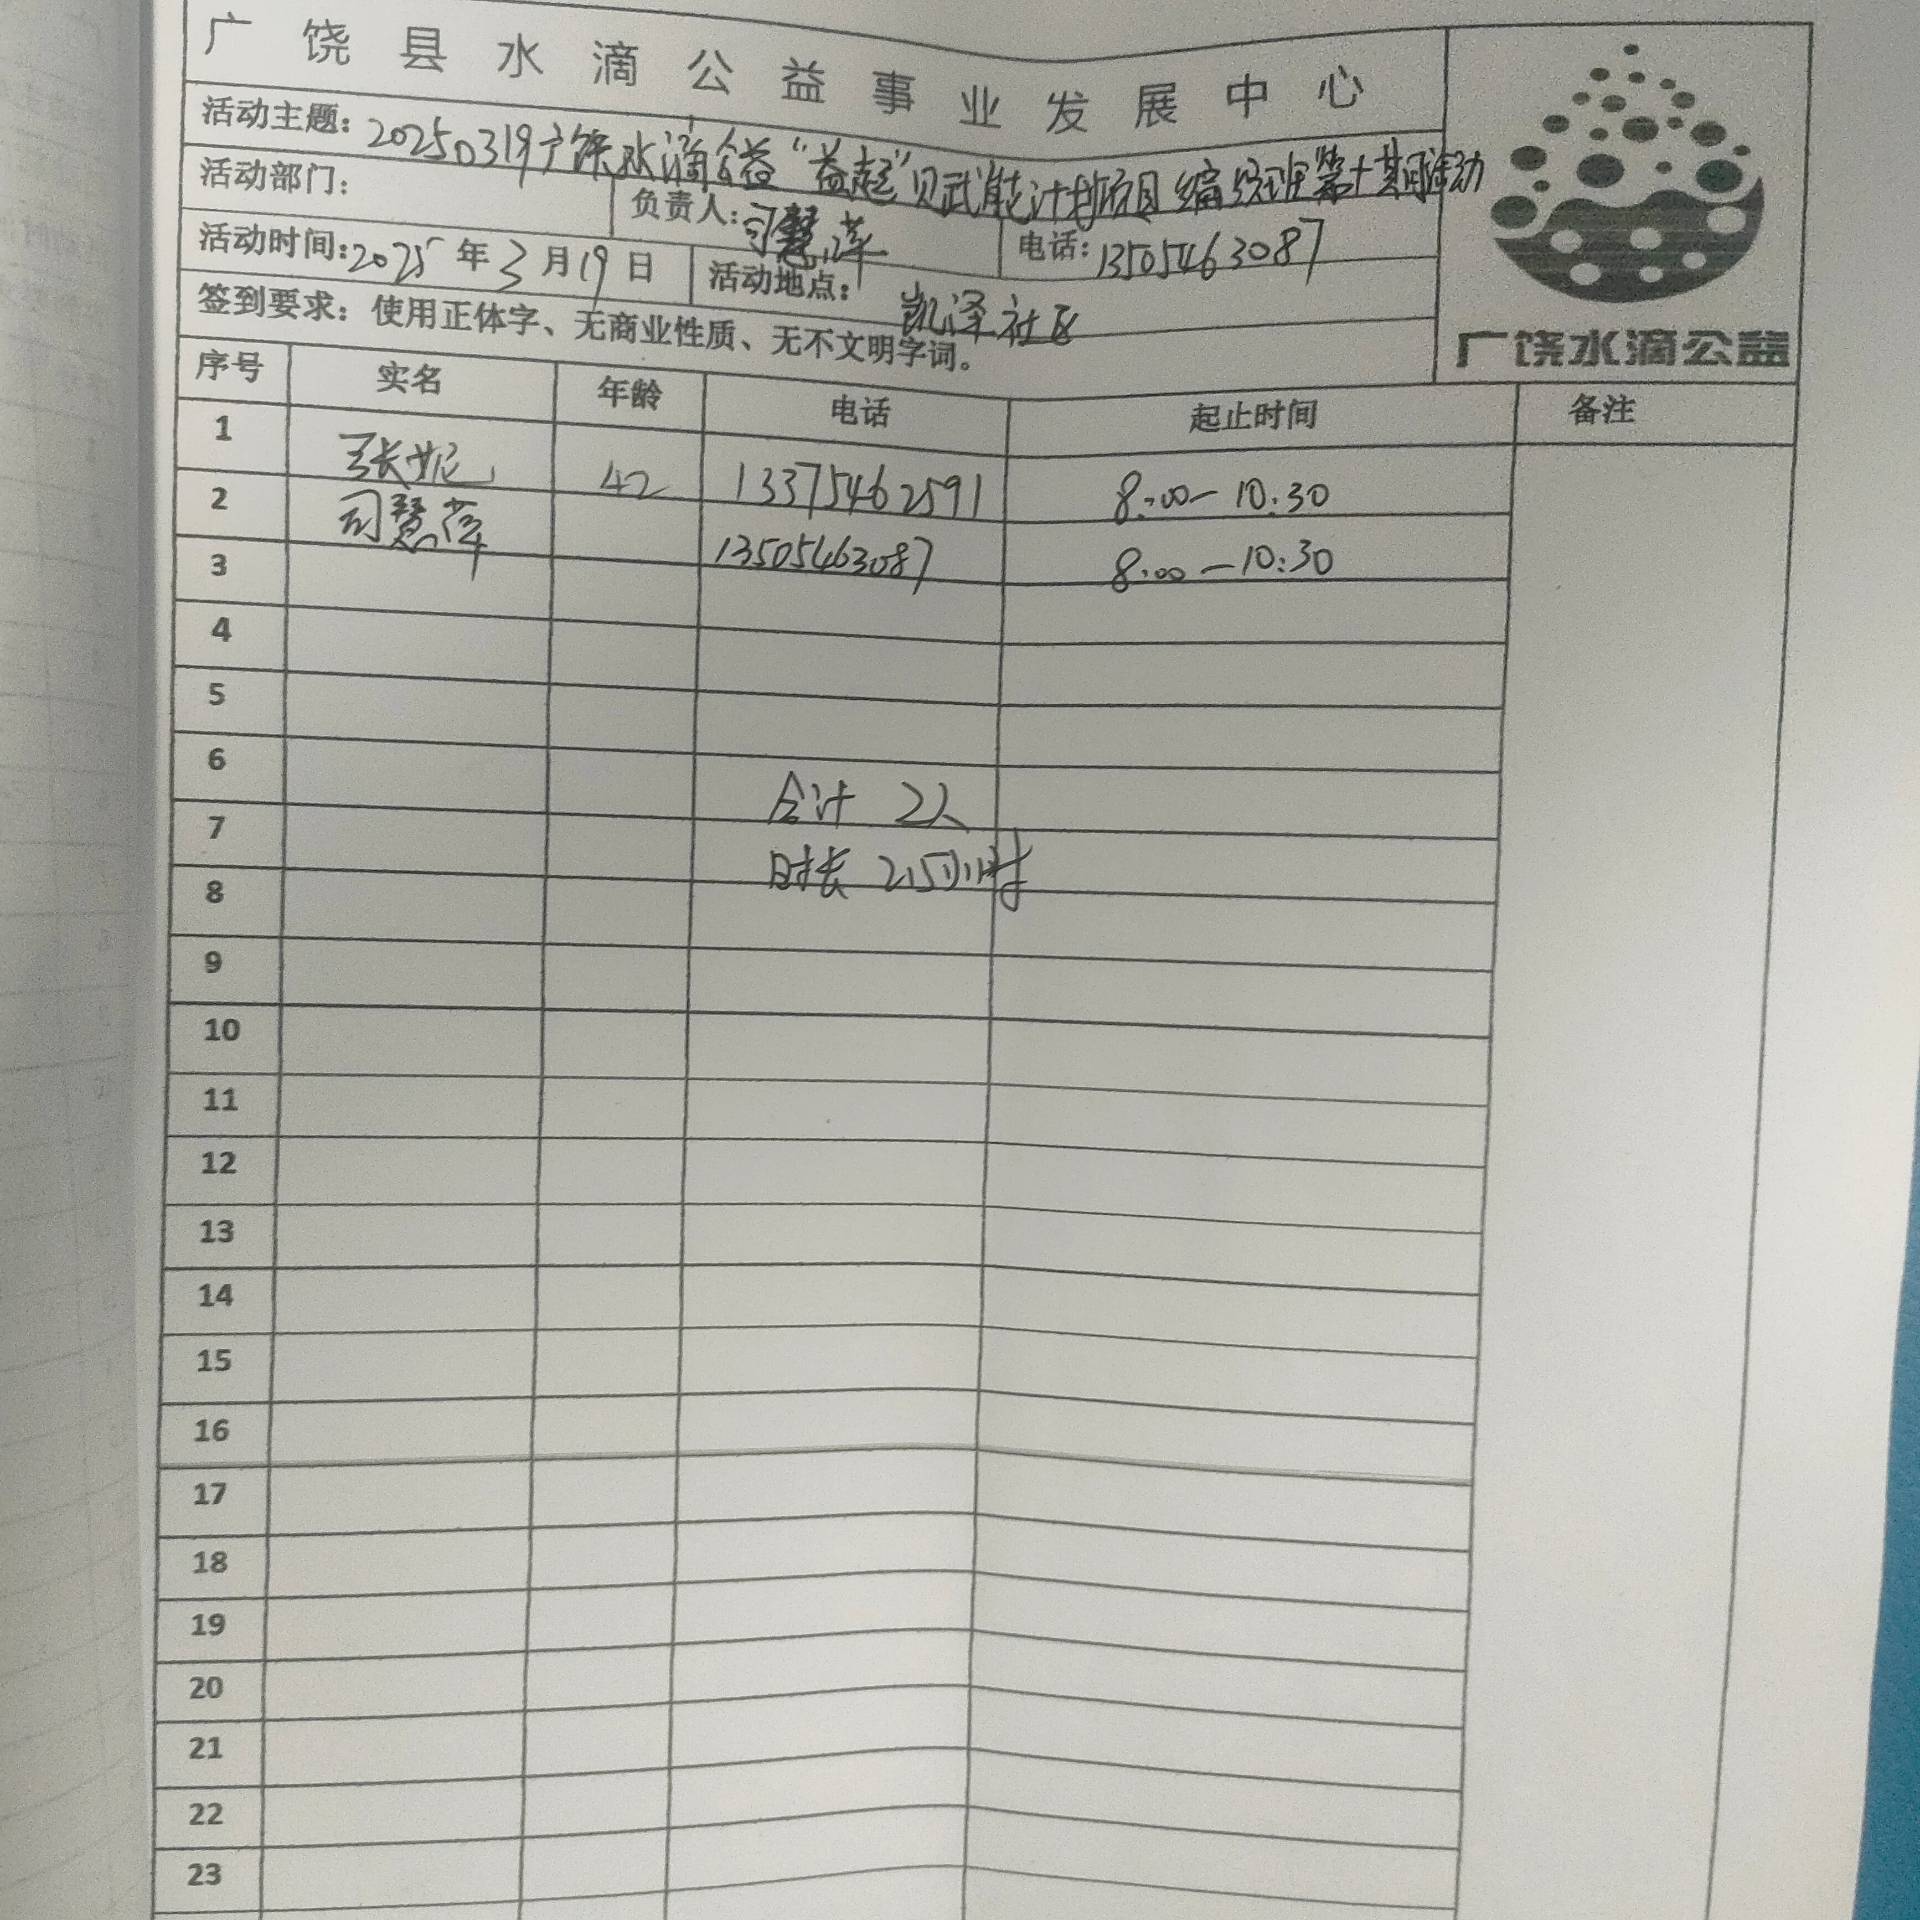 广饶县水滴公益事业发展中心
活动主题：20250319广饶水滴公益“益起”贝武能计划项目编织班第十期活动
活动部门：
负责人：司慧萍
电话：13505463087
活动时间：2025年3月19日
活动地点：凯泽社区
签到要求：使用正体字、无商业性质、无不文明字词。
广饶水滴公益
序号 实名 年龄 电话 起止时间 备注
1 张妮 42 13375462591 8:00-10:30
2 司慧萍 13505463087 8:00-10:30
3
4
5
6
合计 2人
7
时长 2.5小时
8
9
10
11
12
13
14
15
16
17
18
19
20
21
22
23